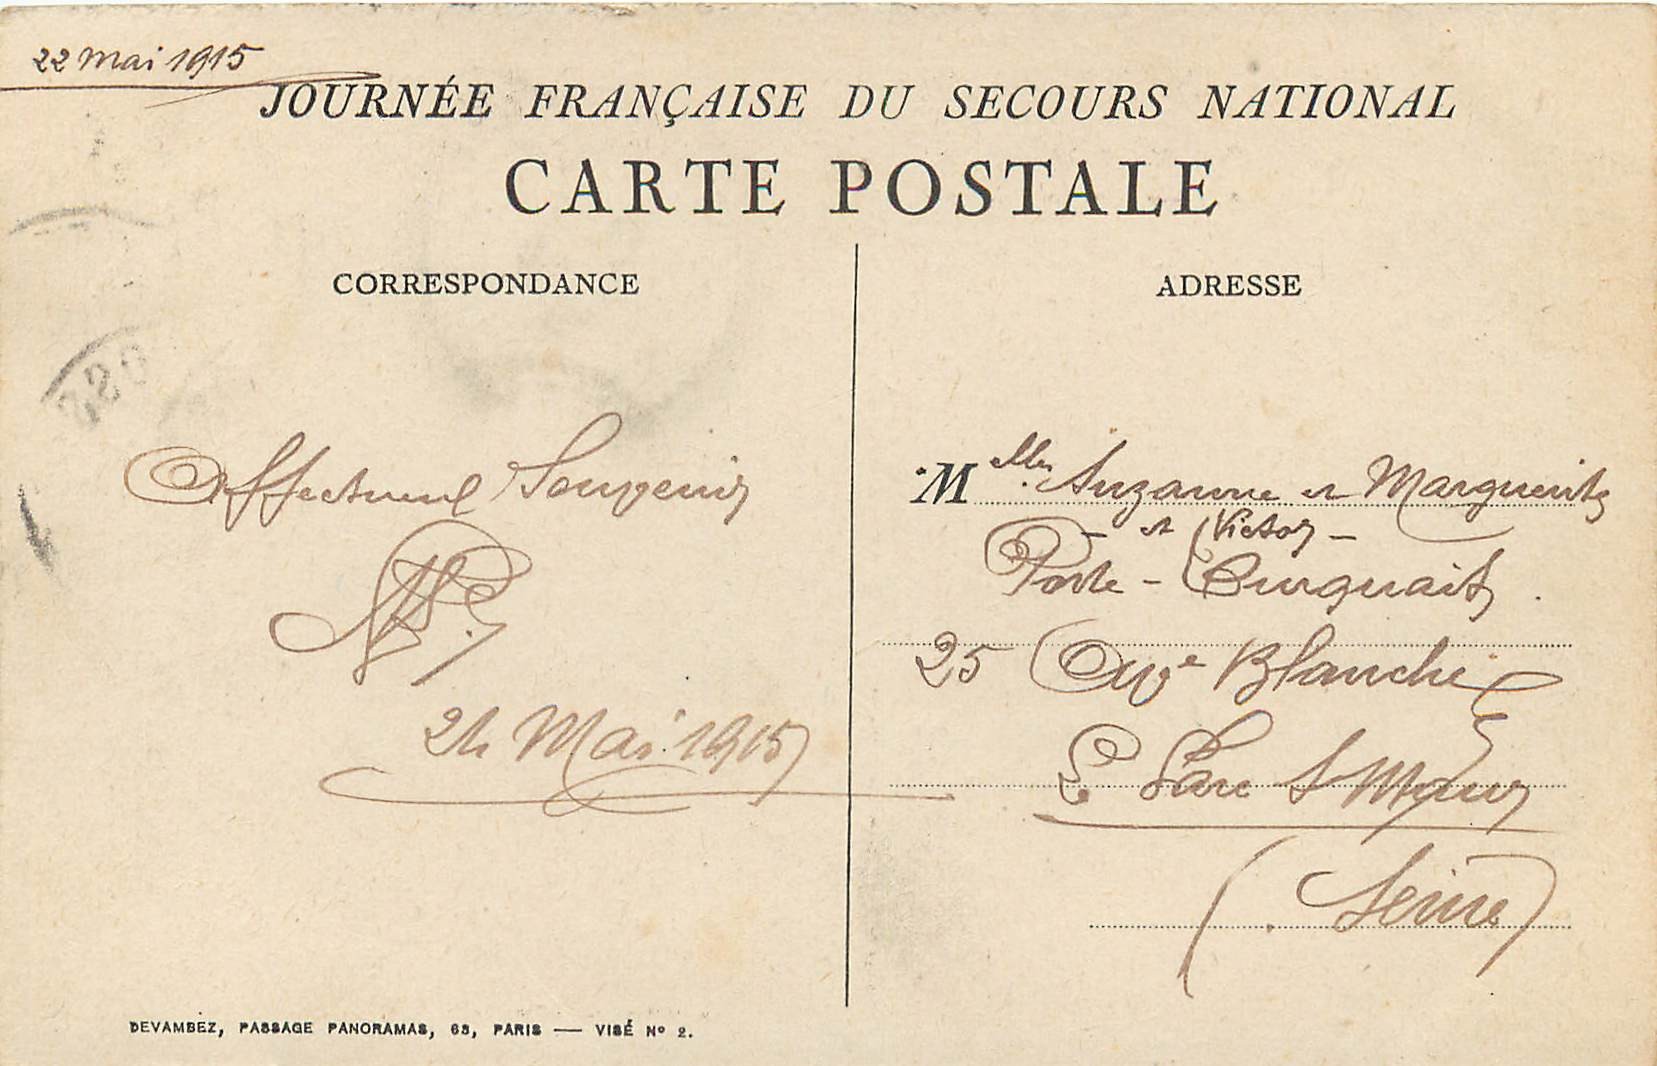 22 mai 1915
JOURNÉE FRANÇAISE DU SECOURS NATIONAL
CARTE POSTALE
CORRESPONDANCE
Affectueux Souvenir
24 Mai 1915
ADRESSE
Melles Suzanne et Marguerite
— et Victor —
Porte -
25 Ave Blanche
Le Parc St Maur
(Seine)
DEVAMBEZ, PASSAGE PANORAMAS, 63, PARIS — VISÉ Nº 2.